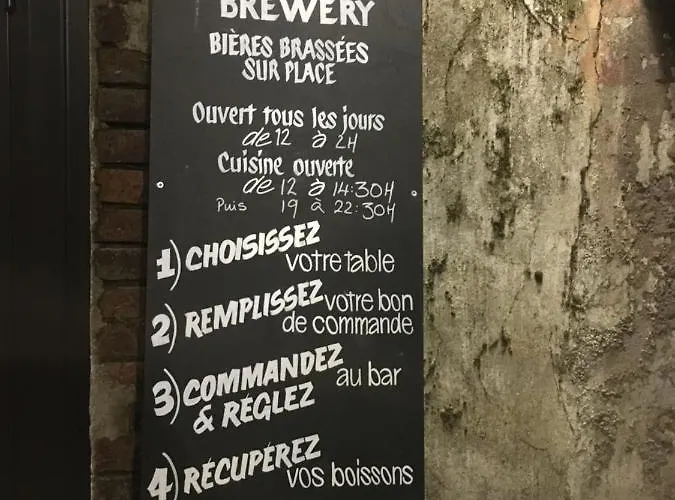 BREWERY
BIÈRES BRASSÉES
SUR PLACE
Ouvert tous les jours
de 12 à 2H
Cuisine ouverte
de 12 à 14:30H
Puis 19 à 22:30H
1) CHOISISSEZ
votre table
2) REMPLISSEZ votre bon
de commande
3) COMMANDEZ au bar
& RÉGLEZ
4) RÉCUPÉREZ
vos boissons